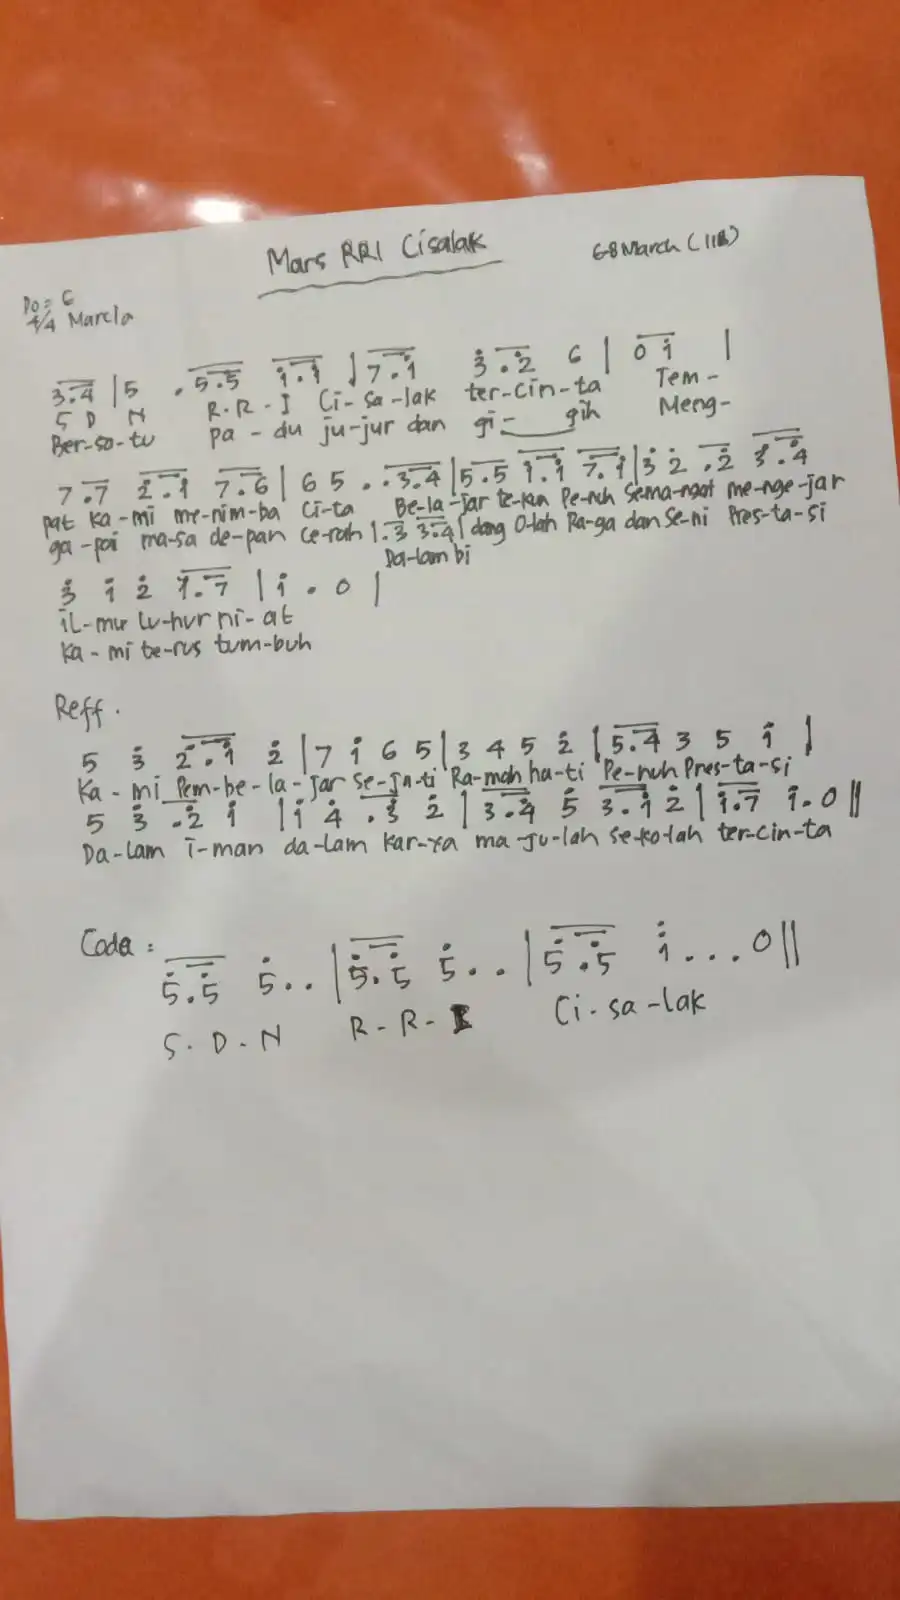 Mars RRI Cisalak
68 March (118)
Do = G
4/4 Marcia
3.4 | 5 . 5.5 i.i | 7.i 3̇ .2̇ 6 | 0 i |
S D N R.R-I Ci-sa-lak ter-cin-ta Tem-
Ber-sa-tu pa-du ju-jur dan gi-gih Meng-
7 .7 2̇.i 7.6 | 6 5 . .3.4 | 5.5 i.i 7.i | 3̇ 2̇ .2̇ 3̇.4̇
pat ka-mi me-nim-ba ci-ta Be-la-jar te-kun Pe-nuh sema-ngat me-nge-jar
ga-pai ma-sa de-pan ce-rah |.3 3.4| dang O-lah Ra-ga dan Se-ni Pres-ta-si
Da-lam bi
3̇ i 2̇ i.7 | i . 0 |
iL-mu lu-hur ni-at
Ka-mi te-rus tum-buh
Reff.
5 3̇ 2̇.i 2̇ | 7 i 6 5 | 3 4 5 2̇ | 5.4 3 5 i |
Ka-mi Pem-be-la-jar se-ja-ti Ra-mah ha-ti Pe-nuh Pres-ta-si
5 3̇ .2̇ i | i 4̇ .3̇ 2̇ | 3̇.4̇ 5̇ 3̇.i 2̇ | i.7 i.0 ||
Da-lam i-man da-lam kar-ya ma-ju-lah se-ko-lah ter-cin-ta
Coda :
5̇.5̇ 5̇.. | 5̇.5̇ 5̇.. | 5̇.5̇ i...0 ||
S.D.N R-R-I Ci-sa-lak